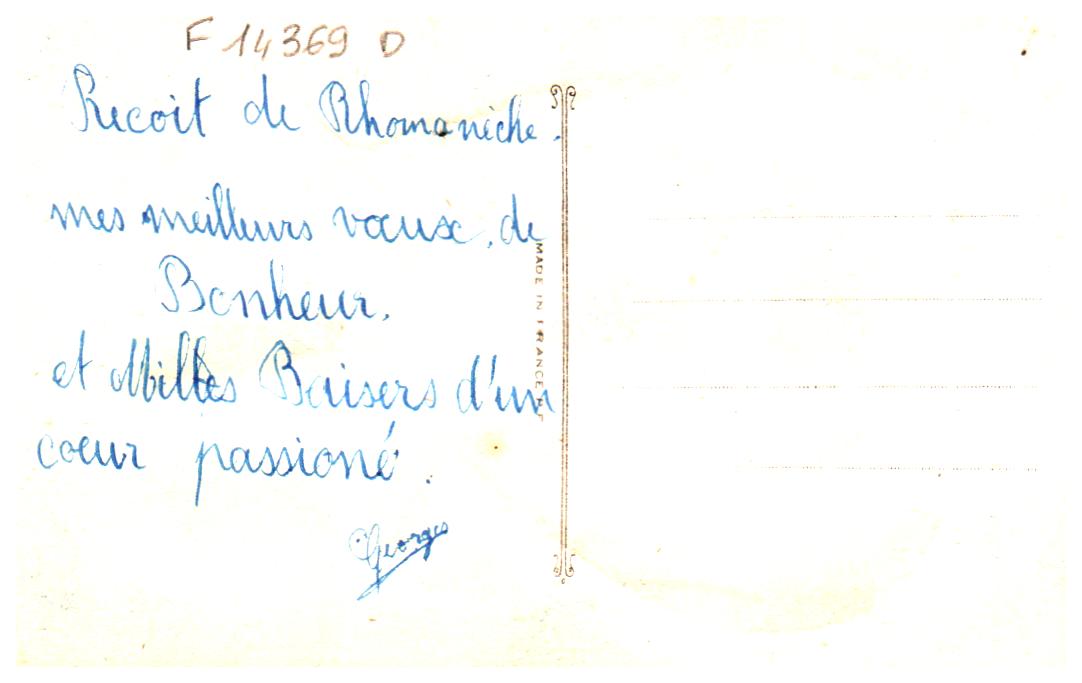 F 14369 D
Recoit de Rhomaneche.
mes meilleurs vœux, de
Bonheur,
et Milles Baisers d'un
coeur passioné.
Georges
MADE IN FRANCE